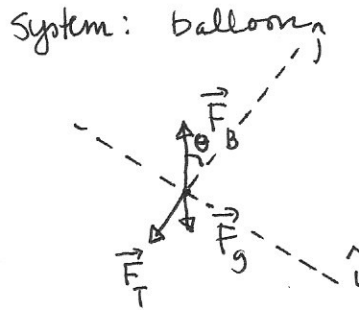 System: balloon
ĵ
F⃗_B
θ
F⃗_g
F⃗_T
î